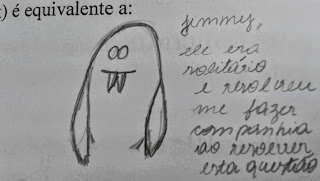 ) é equivalente a:
jimmy,
ele era
solitário
e resolveu
me fazer
companhia
ao resolver
esta questão